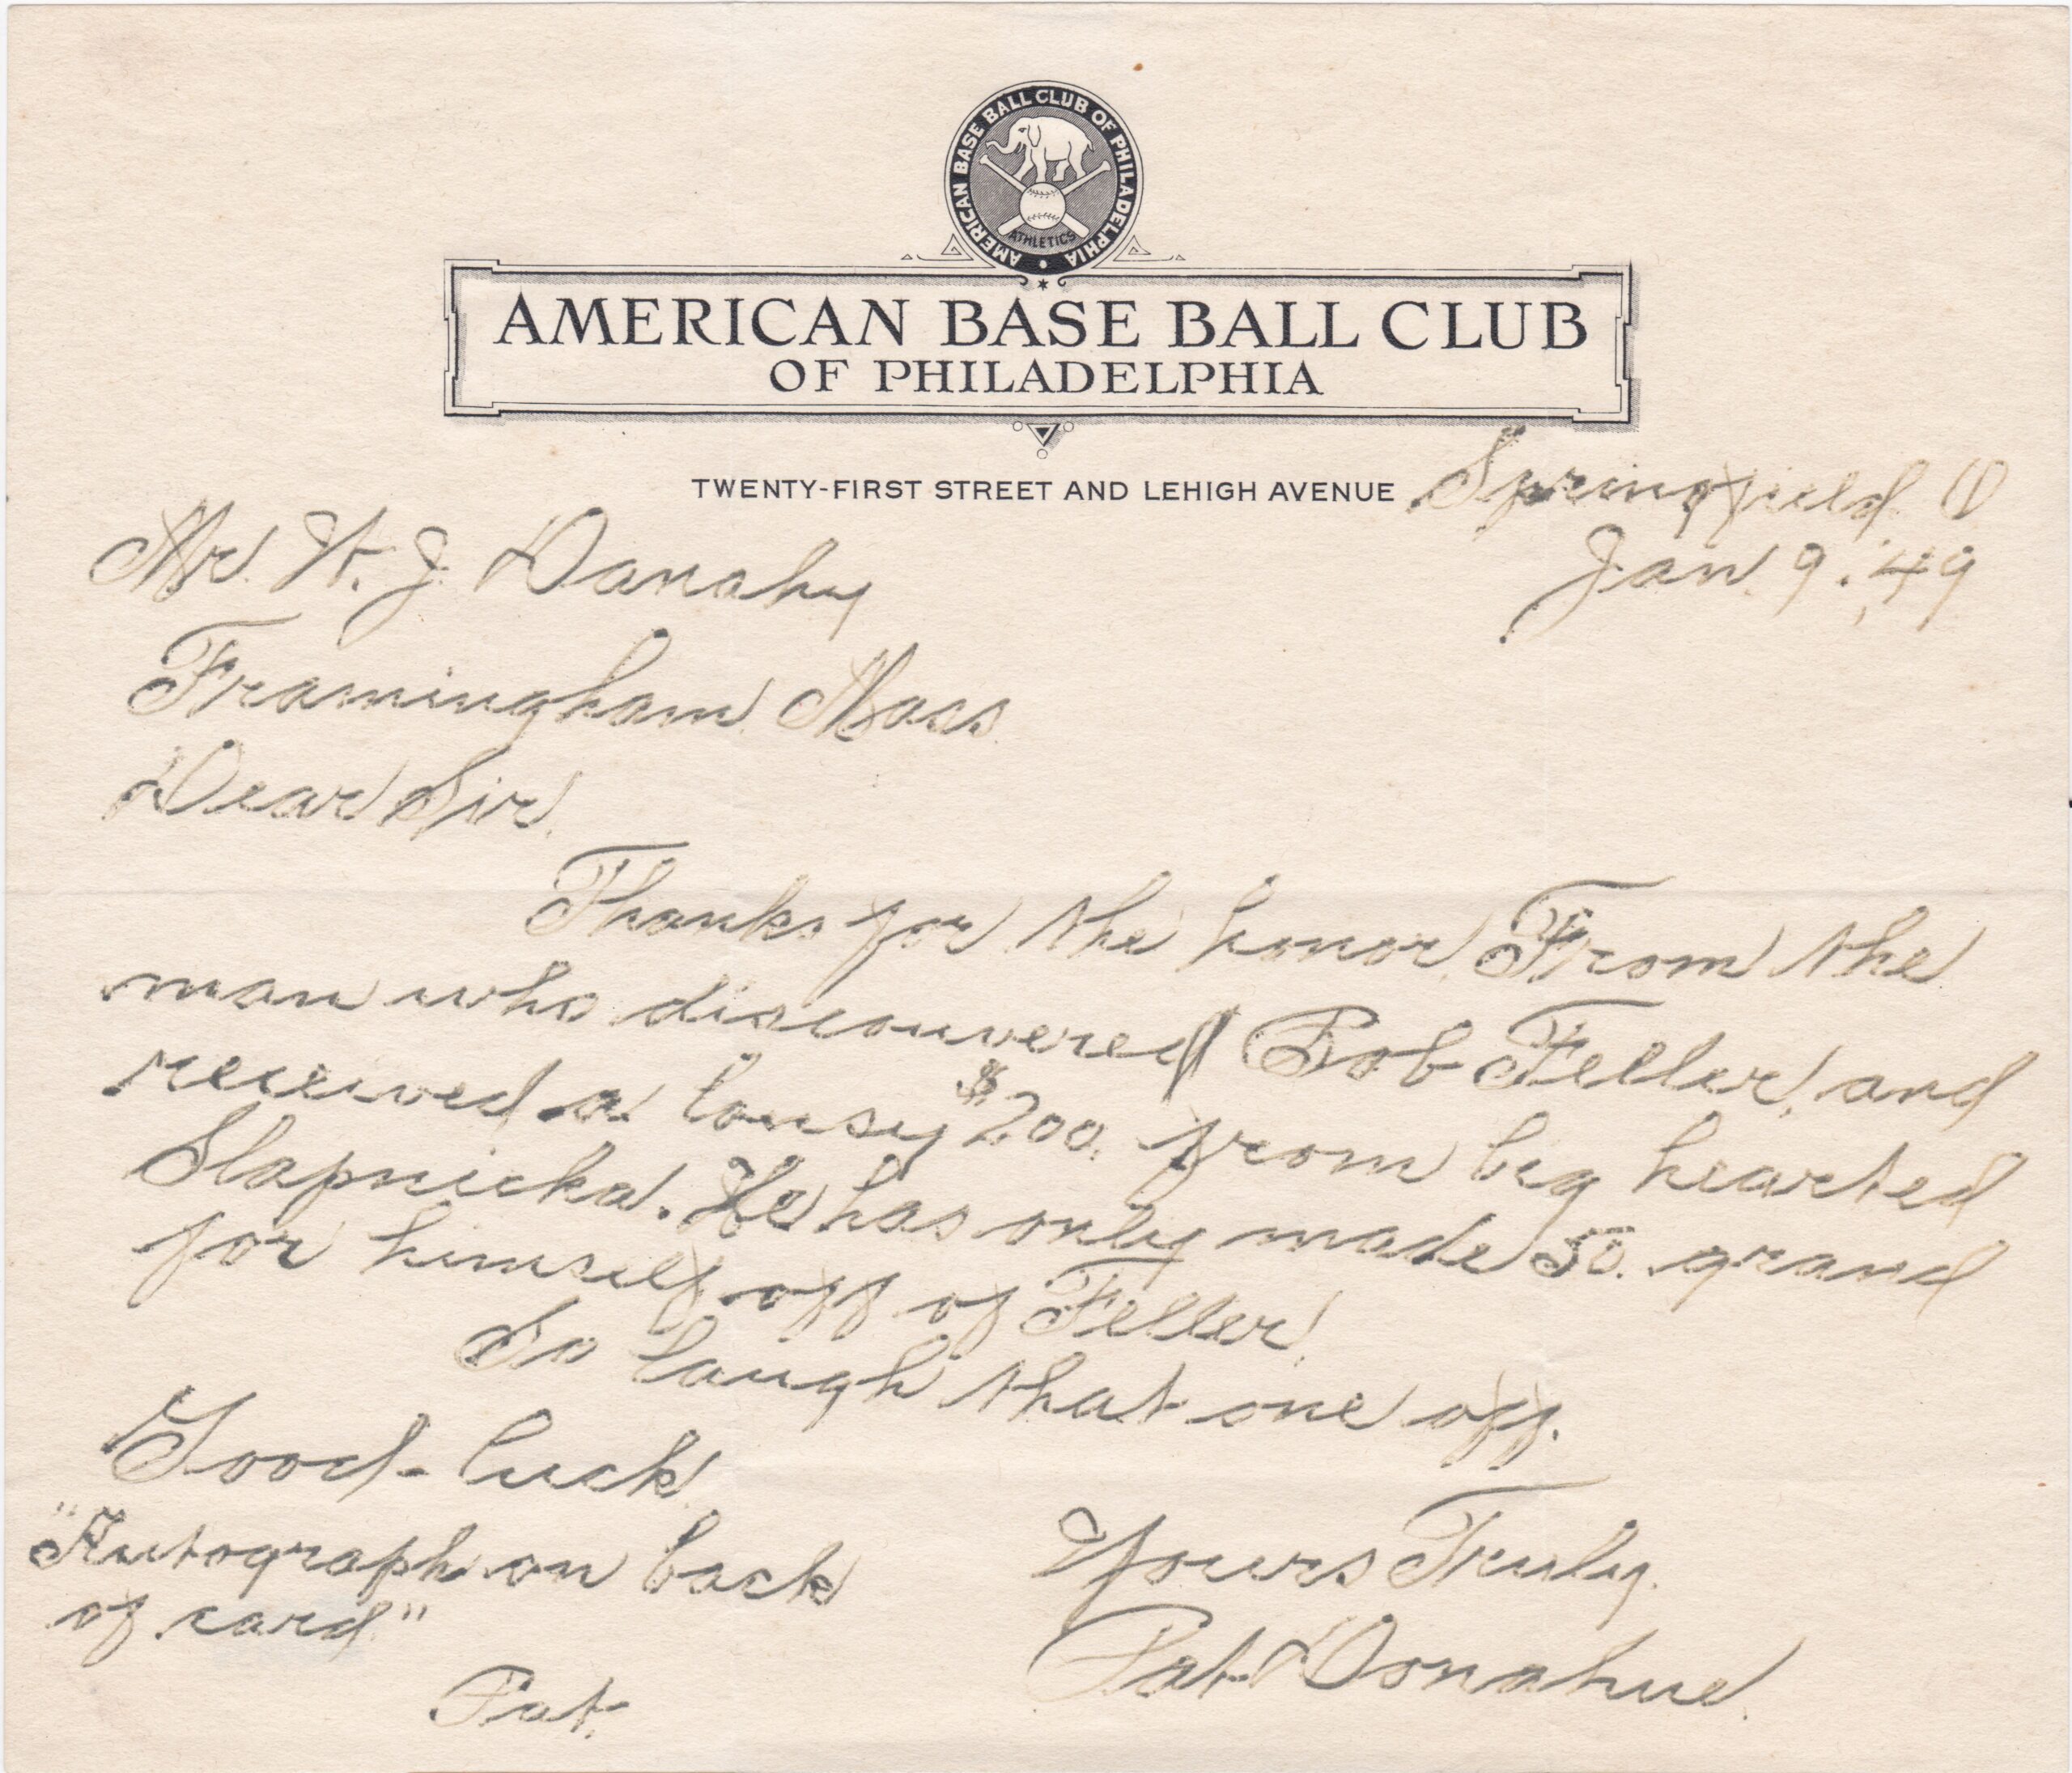 AMERICAN BASE BALL CLUB OF PHILADELPHIA
ATHLETICS
AMERICAN BASE BALL CLUB
OF PHILADELPHIA
TWENTY-FIRST STREET AND LEHIGH AVENUE
Springfield O
Jan. 9. '49
Mr. W. J. Danahy
Framingham. Mass.
Dear Sir.
Thanks for the honor. From the
man who discouvered Bob Feller, and
received a lousy $200. from big hearted
Slapnicka. He has only made 50. grand
for himself off of Feller.
So laugh that one off.
Good-luck.
"Autograph on back
of card."
Pat.
Yours Truly.
Pat Donahue.